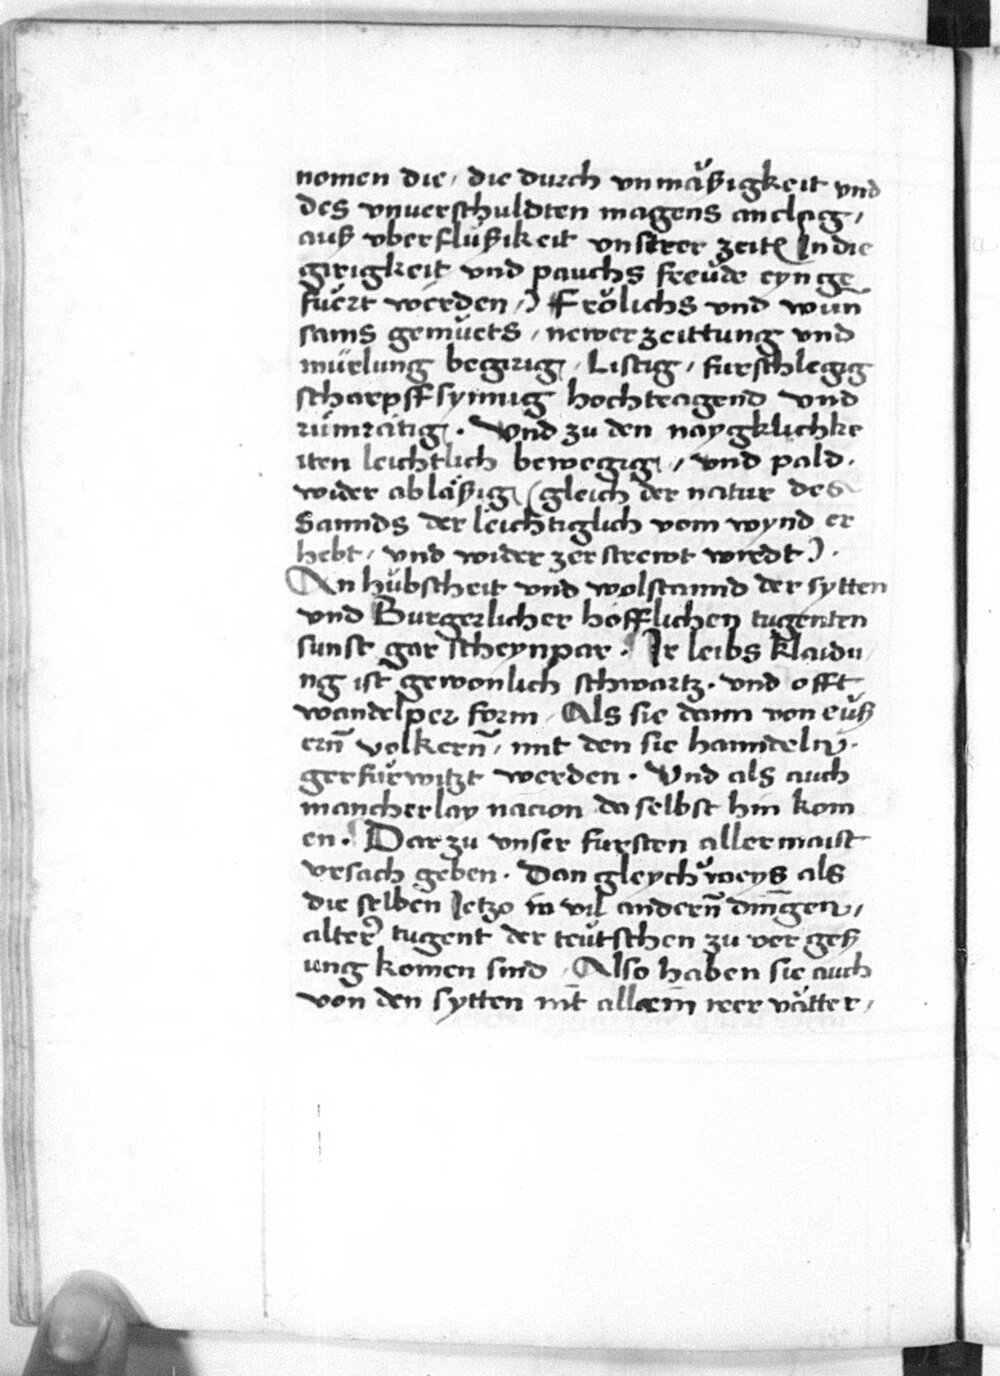 nomen die / die durch vnmäßigkeit vnd
des vnuerschuldten magens anclag /
auß vberflüßikeit vnserer zeitt In die
girigkeit vnd pauchs freüde eynge
füert werden /) Frölichs vnd wun̄
sams gemüets / newer zeittung vnd
mürlung begirig / Listig / furschlegig
scharpffsynnig hochtragend vnd
rümrätig . Vnd zu den naygklichke
iten leichtlich bewegig / vnd pald .
wider abläßig (gleich der natur des
Sannds der leichtiglich vom wynd er
hebt / vnd wider zerstrewt wirdt ) .
An hübscheit vnd wolstannd der sytten
vnd Burgerlicher höfflichen tugenten
sunst gar scheynpar . Ir leibs klaidu
ng ist gewonlich schwartz . vnd offt
wandelper form / Als sie dann von eüß
ern̄ volkern̄ / mit den sie hanndeln .
gerfürwitzt werden . Vnd als auch
mancherlay nacion daselbst hin kom
en . Darzu vnser fursten allermaist
vrsach geben . Dan gleych weys als
die selben Ietzo in vil andern̄ dingen /
alter tugent der teütschen zu vergeß
ung komen sind / Also haben sie auch
von den sytten nit allein irer vätter /